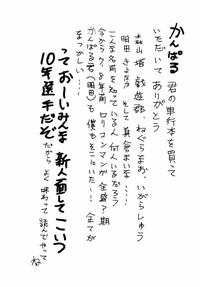 かんぱる 君の単行本を買って
いただいて ありがとう
森山塔 戯遊群、ねぐら☆なお、いがらしゅう
明田 きよなか そして 真倉まいな……
こんな名前を知っている人 何人いるだろう
今から7、8年前 ロリコンマンが全盛?期
かんぱる君(明田)も僕もそこにいた…! 全てが
なつかしい……
っておーいみんな 新人面してこいつ
10年選手だぞ だから よく味わって 読んでやって
ね